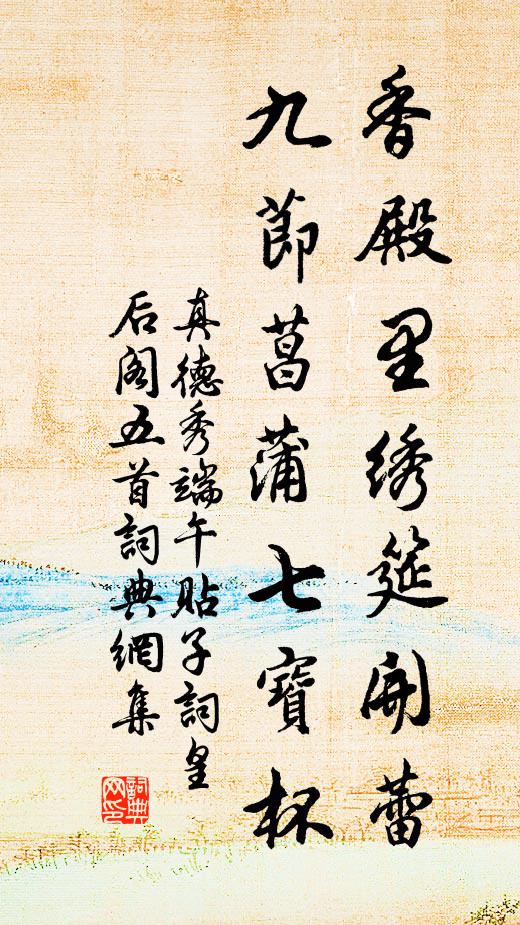 香殿里绣筵开蕾
九節菖蒲七寶杯
真德秀端午貼子詞皇
后阁五首詞典網集
詞典
网印